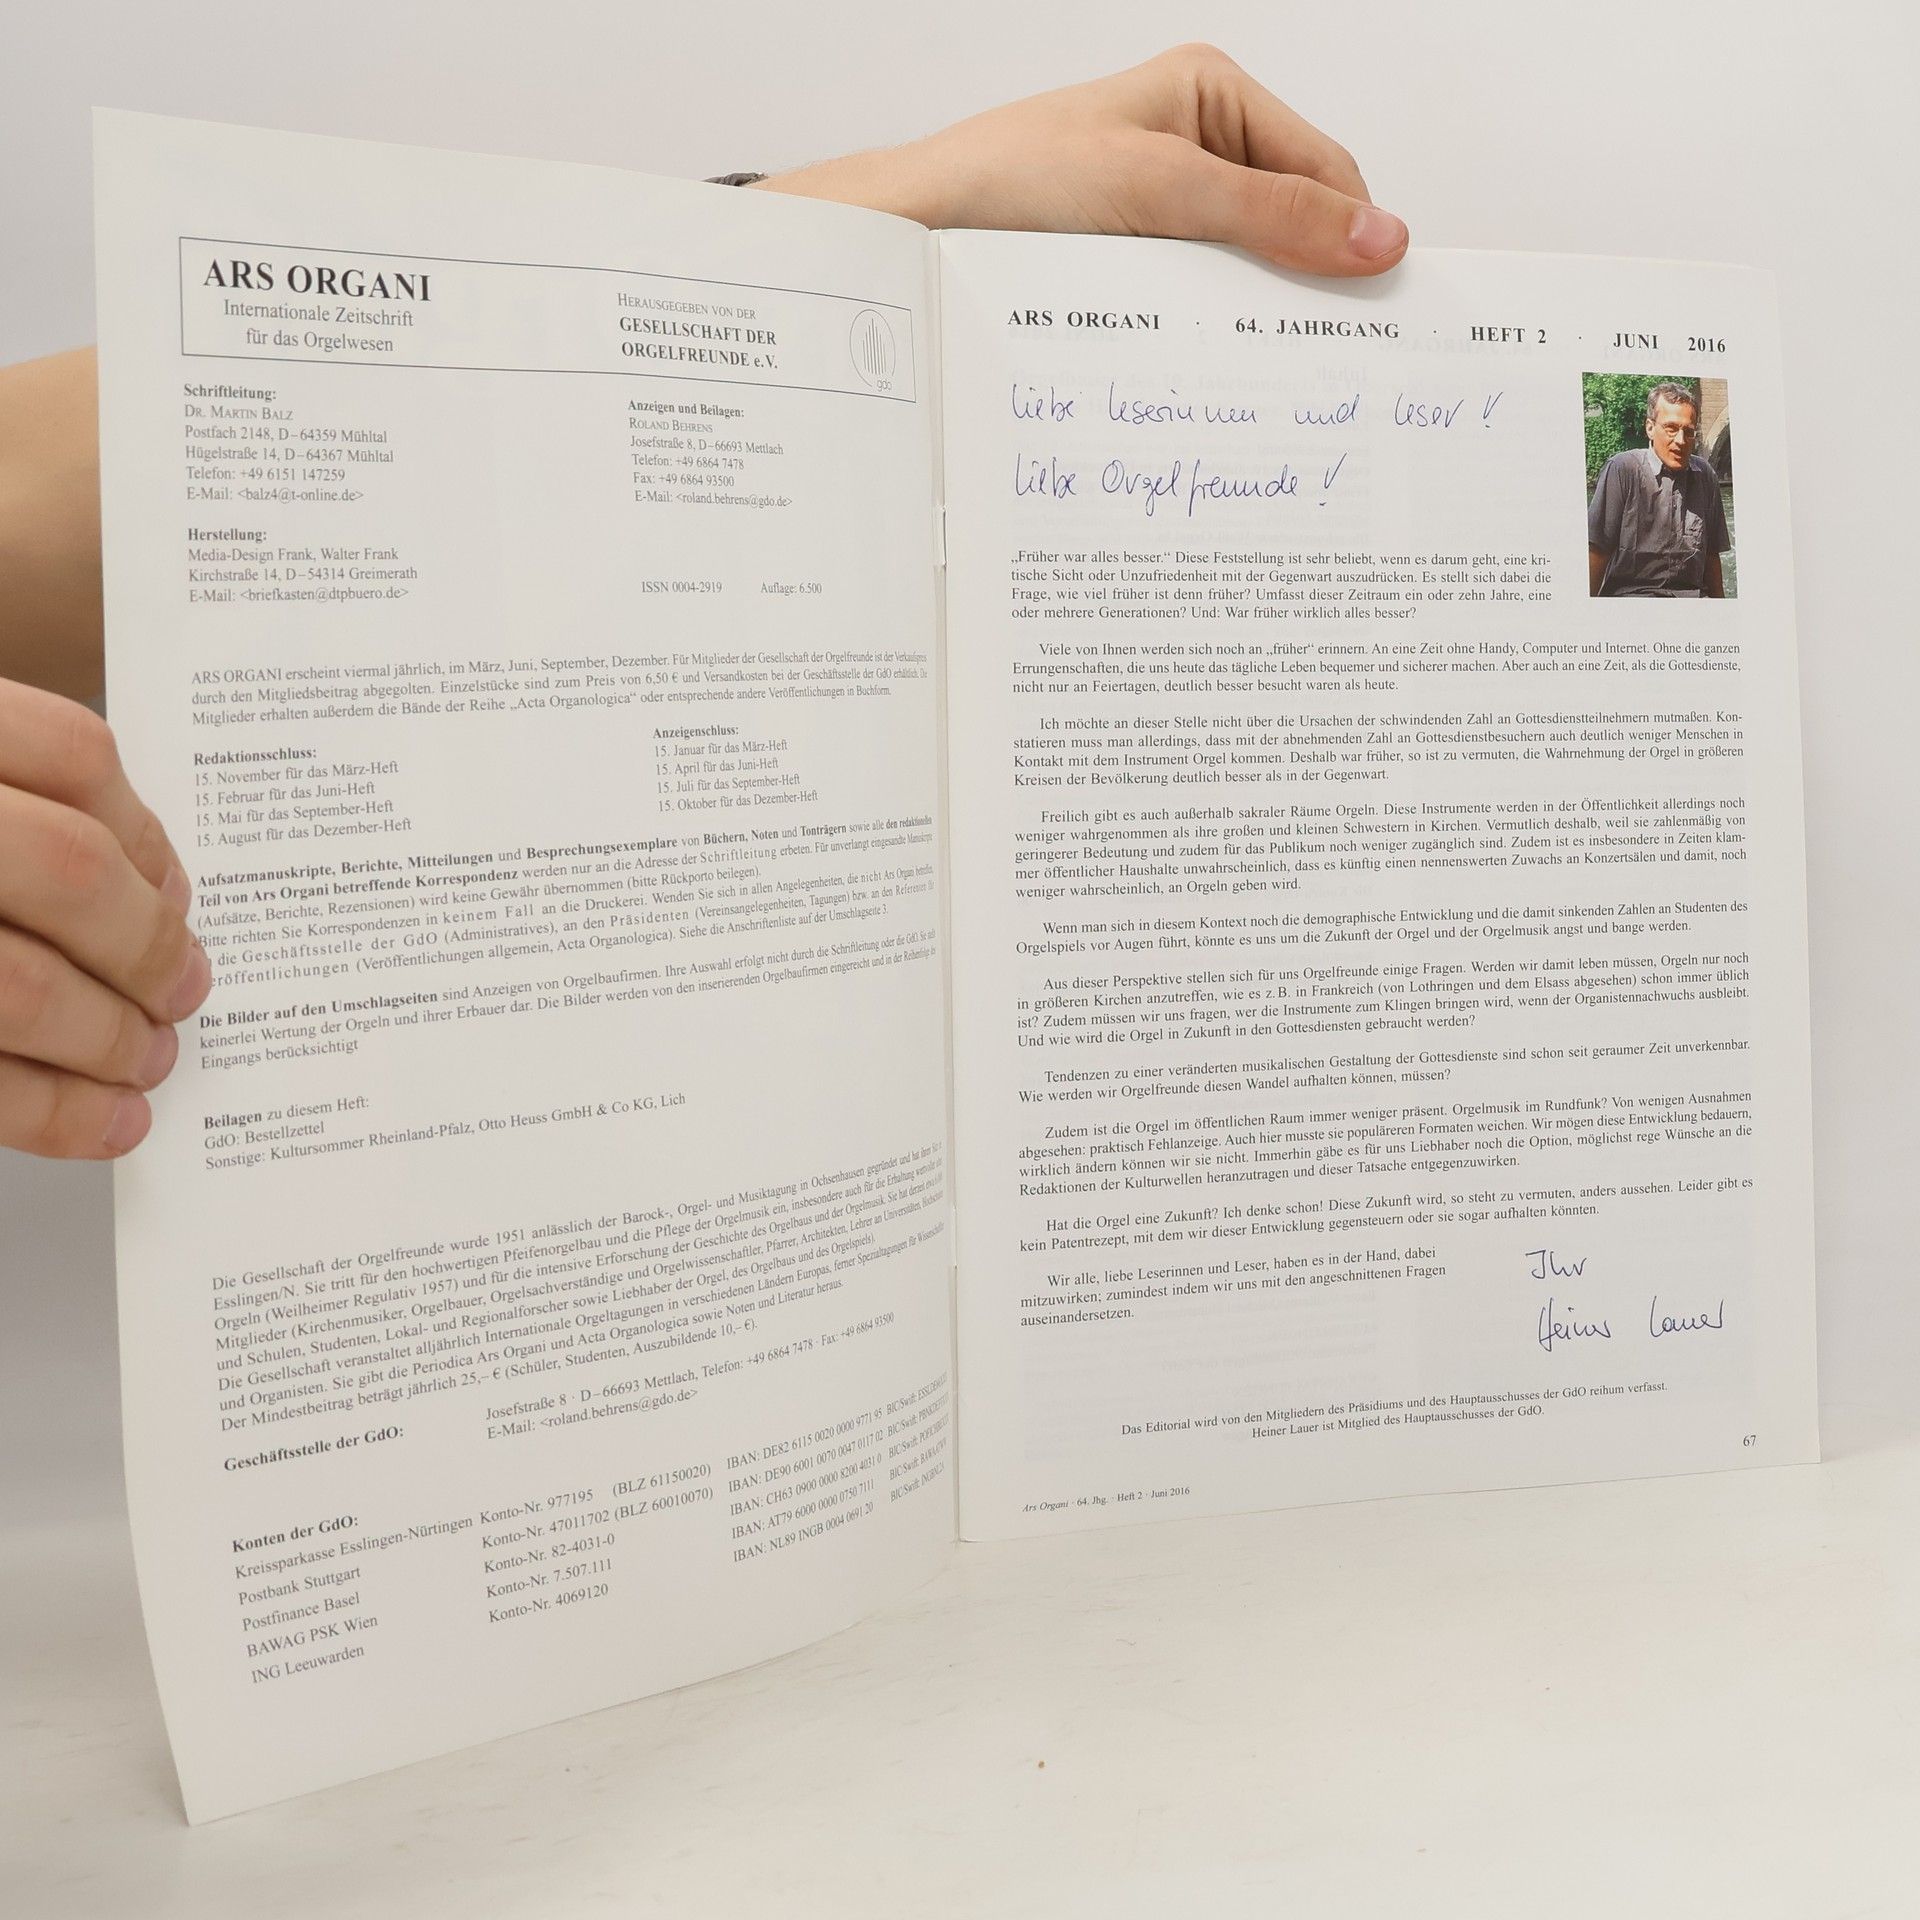 ARS ORGANI
Internationale Zeitschrift
für das Orgelwesen
HERAUSGEGEBEN VON DER
GESELLSCHAFT DER
ORGELFREUNDE e.V.
gdo
Schriftleitung:
DR. MARTIN BALZ
Postfach 2148, D–64359 Mühltal
Hügelstraße 14, D–64367 Mühltal
Telefon: +49 6151 147259
E-Mail: <balz4@t-online.de>
Anzeigen und Beilagen:
ROLAND BEHRENS
Josefstraße 8, D–66693 Mettlach
Telefon: +49 6864 7478
Fax: +49 6864 93500
E-Mail: <roland.behrens@gdo.de>
Herstellung:
Media-Design Frank, Walter Frank
Kirchstraße 14, D–54314 Greimerath
E-Mail: <briefkasten@dtpbuero.de>
ISSN 0004-2919 Auflage: 6.500
ARS ORGANI erscheint viermal jährlich, im März, Juni, September, Dezember. Für Mitglieder der Gesellschaft der Orgelfreunde ist der Verkaufspreis
durch den Mitgliedsbeitrag abgegolten. Einzelstücke sind zum Preis von 6,50 € und Versandkosten bei der Geschäftsstelle der GdO erhältlich. Die
Mitglieder erhalten außerdem die Bände der Reihe „Acta Organologica“ oder entsprechende andere Veröffentlichungen in Buchform.
Redaktionsschluss:
15. November für das März-Heft
15. Februar für das Juni-Heft
15. Mai für das September-Heft
15. August für das Dezember-Heft
Anzeigenschluss:
15. Januar für das März-Heft
15. April für das Juni-Heft
15. Juli für das September-Heft
15. Oktober für das Dezember-Heft
Aufsatzmanuskripte, Berichte, Mitteilungen und Besprechungsexemplare von Büchern, Noten und Tonträgern sowie alle den redaktionellen
Teil von Ars Organi betreffende Korrespondenz werden nur an die Adresse der Schriftleitung erbeten. Für unverlangt eingesandte Manuskripte
(Aufsätze, Berichte, Rezensionen) wird keine Gewähr übernommen (bitte Rückporto beilegen).
Bitte richten Sie Korrespondenzen in keinem Fall an die Druckerei. Wenden Sie sich in allen Angelegenheiten, die nicht Ars Organi betreffen,
die Geschäftsstelle der GdO (Administratives), an den Präsidenten (Vereinsangelegenheiten, Tagungen) bzw. an den Referenten für
eröffentlichungen (Veröffentlichungen allgemein, Acta Organologica). Siehe die Anschriftenliste auf der Umschlagseite 3.
Die Bilder auf den Umschlagseiten sind Anzeigen von Orgelbaufirmen. Ihre Auswahl erfolgt nicht durch die Schriftleitung oder die GdO. Sie stellt
keinerlei Wertung der Orgeln und ihrer Erbauer dar. Die Bilder werden von den inserierenden Orgelbaufirmen eingereicht und in der Reihenfolge des
Eingangs berücksichtigt
Beilagen zu diesem Heft:
GdO: Bestellzettel
Sonstige: Kultursommer Rheinland-Pfalz, Otto Heuss GmbH & Co KG, Lich
Die Gesellschaft der Orgelfreunde wurde 1951 anlässlich der Barock-, Orgel- und Musiktagung in Ochsenhausen gegründet und hat ihren Sitz in
Esslingen/N. Sie tritt für den hochwertigen Pfeifenorgelbau und die Pflege der Orgelmusik ein, insbesondere auch für die Erhaltung wertvoller alter
Orgeln (Weilheimer Regulativ 1957) und für die intensive Erforschung der Geschichte des Orgelbaus und der Orgelmusik. Sie hat derzeit etwa
Mitglieder (Kirchenmusiker, Orgelbauer, Orgelsachverständige und Orgelwissenschaftler, Pfarrer, Architekten, Lehrer an Universitäten, Hochschulen
und Schulen, Studenten, Lokal- und Regionalforscher sowie Liebhaber der Orgel, des Orgelbaus und des Orgelspiels).
Die Gesellschaft veranstaltet alljährlich Internationale Orgeltagungen in verschiedenen Ländern Europas, ferner Spezialtagungen für Wissenschaftler
und Organisten. Sie gibt die Periodica Ars Organi und Acta Organologica sowie Noten und Literatur heraus.
Der Mindestbeitrag beträgt jährlich 25,– € (Schüler, Studenten, Auszubildende 10,– €).
Geschäftsstelle der GdO:
Josefstraße 8 · D–66693 Mettlach, Telefon: +49 6864 7478 · Fax: +49 6864 93500
E-Mail: <roland.behrens@gdo.de>
Konten der GdO:
Kreissparkasse Esslingen-Nürtingen Konto-Nr. 977195 (BLZ 61150020) IBAN: DE82 6115 0020 0000 9771 95 BIC/Swift:
Postbank Stuttgart Konto-Nr. 47011702 (BLZ 60010070) IBAN: DE90 6001 0070 0047 0117 02 BIC/Swift:
Postfinance Basel Konto-Nr. 82-4031-0 IBAN: CH63 0900 0000 8200 4031 0 BIC/Swift:
BAWAG PSK Wien Konto-Nr. 7.507.111 IBAN: AT79 6000 0000 0750 7111 BIC/Swift:
ING Leeuwarden Konto-Nr. 4069120 IBAN: NL89 INGB 0004 0691 20 BIC/Swift: INGBNL2A
ARS ORGANI · 64. JAHRGANG · HEFT 2 · JUNI 2016
Liebe Leserinnen und Leser!
Liebe Orgelfreunde!
„Früher war alles besser.“ Diese Feststellung ist sehr beliebt, wenn es darum geht, eine kri-
tische Sicht oder Unzufriedenheit mit der Gegenwart auszudrücken. Es stellt sich dabei die
Frage, wie viel früher ist denn früher? Umfasst dieser Zeitraum ein oder zehn Jahre, eine
oder mehrere Generationen? Und: War früher wirklich alles besser?
Viele von Ihnen werden sich noch an „früher“ erinnern. An eine Zeit ohne Handy, Computer und Internet. Ohne die ganzen
Errungenschaften, die uns heute das tägliche Leben bequemer und sicherer machen. Aber auch an eine Zeit, als die Gottesdienste,
nicht nur an Feiertagen, deutlich besser besucht waren als heute.
Ich möchte an dieser Stelle nicht über die Ursachen der schwindenden Zahl an Gottesdienstteilnehmern mutmaßen. Kon-
statieren muss man allerdings, dass mit der abnehmenden Zahl an Gottesdienstbesuchern auch deutlich weniger Menschen in
Kontakt mit dem Instrument Orgel kommen. Deshalb war früher, so ist zu vermuten, die Wahrnehmung der Orgel in größeren
Kreisen der Bevölkerung deutlich besser als in der Gegenwart.
Freilich gibt es auch außerhalb sakraler Räume Orgeln. Diese Instrumente werden in der Öffentlichkeit allerdings noch
weniger wahrgenommen als ihre großen und kleinen Schwestern in Kirchen. Vermutlich deshalb, weil sie zahlenmäßig von
geringerer Bedeutung und zudem für das Publikum noch weniger zugänglich sind. Zudem ist es insbesondere in Zeiten klam-
mer öffentlicher Haushalte unwahrscheinlich, dass es künftig einen nennenswerten Zuwachs an Konzertsälen und damit, noch
weniger wahrscheinlich, an Orgeln geben wird.
Wenn man sich in diesem Kontext noch die demographische Entwicklung und die damit sinkenden Zahlen an Studenten des
Orgelspiels vor Augen führt, könnte es uns um die Zukunft der Orgel und der Orgelmusik angst und bange werden.
Aus dieser Perspektive stellen sich für uns Orgelfreunde einige Fragen. Werden wir damit leben müssen, Orgeln nur noch
in größeren Kirchen anzutreffen, wie es z. B. in Frankreich (von Lothringen und dem Elsass abgesehen) schon immer üblich
ist? Zudem müssen wir uns fragen, wer die Instrumente zum Klingen bringen wird, wenn der Organistennachwuchs ausbleibt.
Und wie wird die Orgel in Zukunft in den Gottesdiensten gebraucht werden?
Tendenzen zu einer veränderten musikalischen Gestaltung der Gottesdienste sind schon seit geraumer Zeit unverkennbar.
Wie werden wir Orgelfreunde diesen Wandel aufhalten können, müssen?
Zudem ist die Orgel im öffentlichen Raum immer weniger präsent. Orgelmusik im Rundfunk? Von wenigen Ausnahmen
abgesehen: praktisch Fehlanzeige. Auch hier musste sie populäreren Formaten weichen. Wir mögen diese Entwicklung bedauern,
wirklich ändern können wir sie nicht. Immerhin gäbe es für uns Liebhaber noch die Option, möglichst rege Wünsche an die
Redaktionen der Kulturwellen heranzutragen und dieser Tatsache entgegenzuwirken.
Hat die Orgel eine Zukunft? Ich denke schon! Diese Zukunft wird, so steht zu vermuten, anders aussehen. Leider gibt es
kein Patentrezept, mit dem wir dieser Entwicklung gegensteuern oder sie sogar aufhalten könnten.
Wir alle, liebe Leserinnen und Leser, haben es in der Hand, dabei
mitzuwirken; zumindest indem wir uns mit den angeschnittenen Fragen
auseinandersetzen.
Ihr
Heiner Lauer
Das Editorial wird von den Mitgliedern des Präsidiums und des Hauptausschusses der GdO reihum verfasst.
Heiner Lauer ist Mitglied des Hauptausschusses der GdO.
67
Ars Organi · 64. Jhg. · Heft 2 · Juni 2016